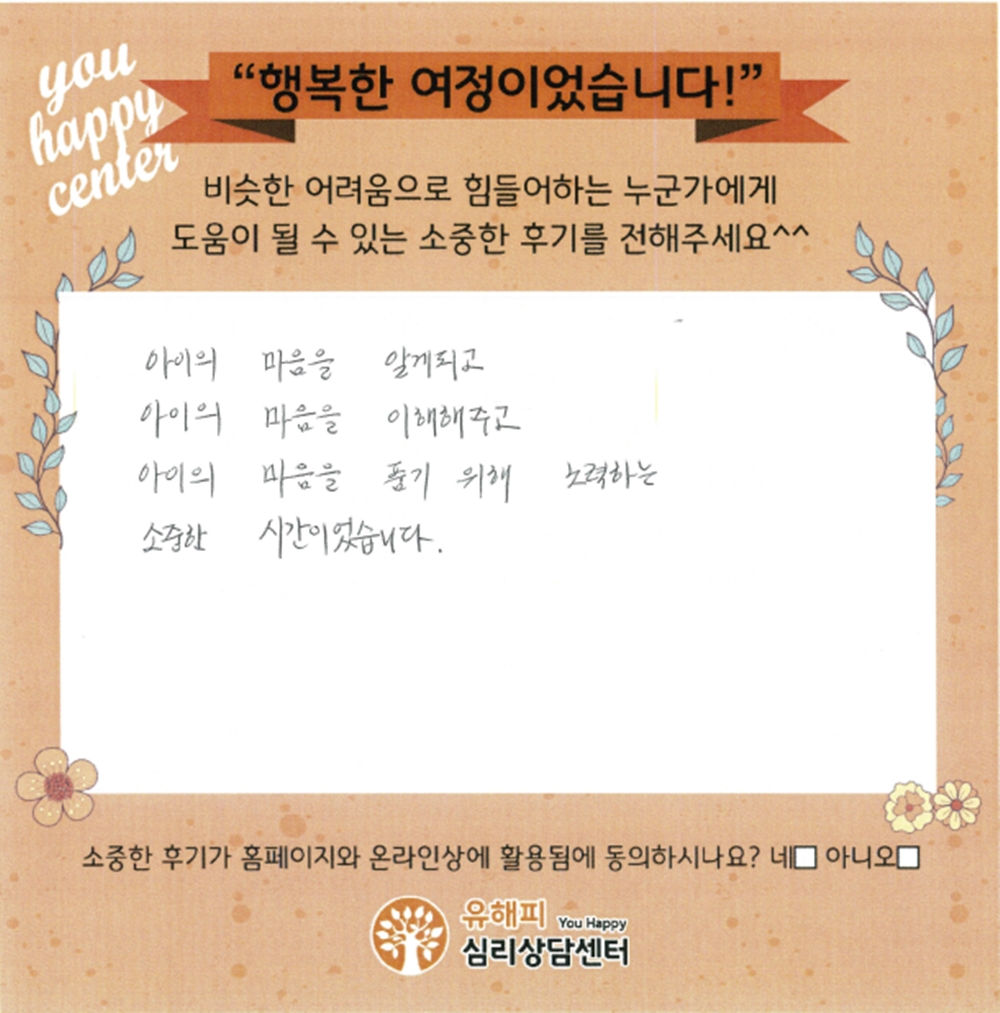 you
happy
center
“행복한 여정이었습니다!”
비슷한 어려움으로 힘들어하는 누군가에게
도움이 될 수 있는 소중한 후기를 전해주세요^^
아이의 마음을 알게되고
아이의 마음을 이해해주고
아이의 마음을 품기 위해 노력하는
소중한 시간이었습니다.
소중한 후기가 홈페이지와 온라인상에 활용됨에 동의하시나요? 네□ 아니오□
유해피 You Happy
심리상담센터